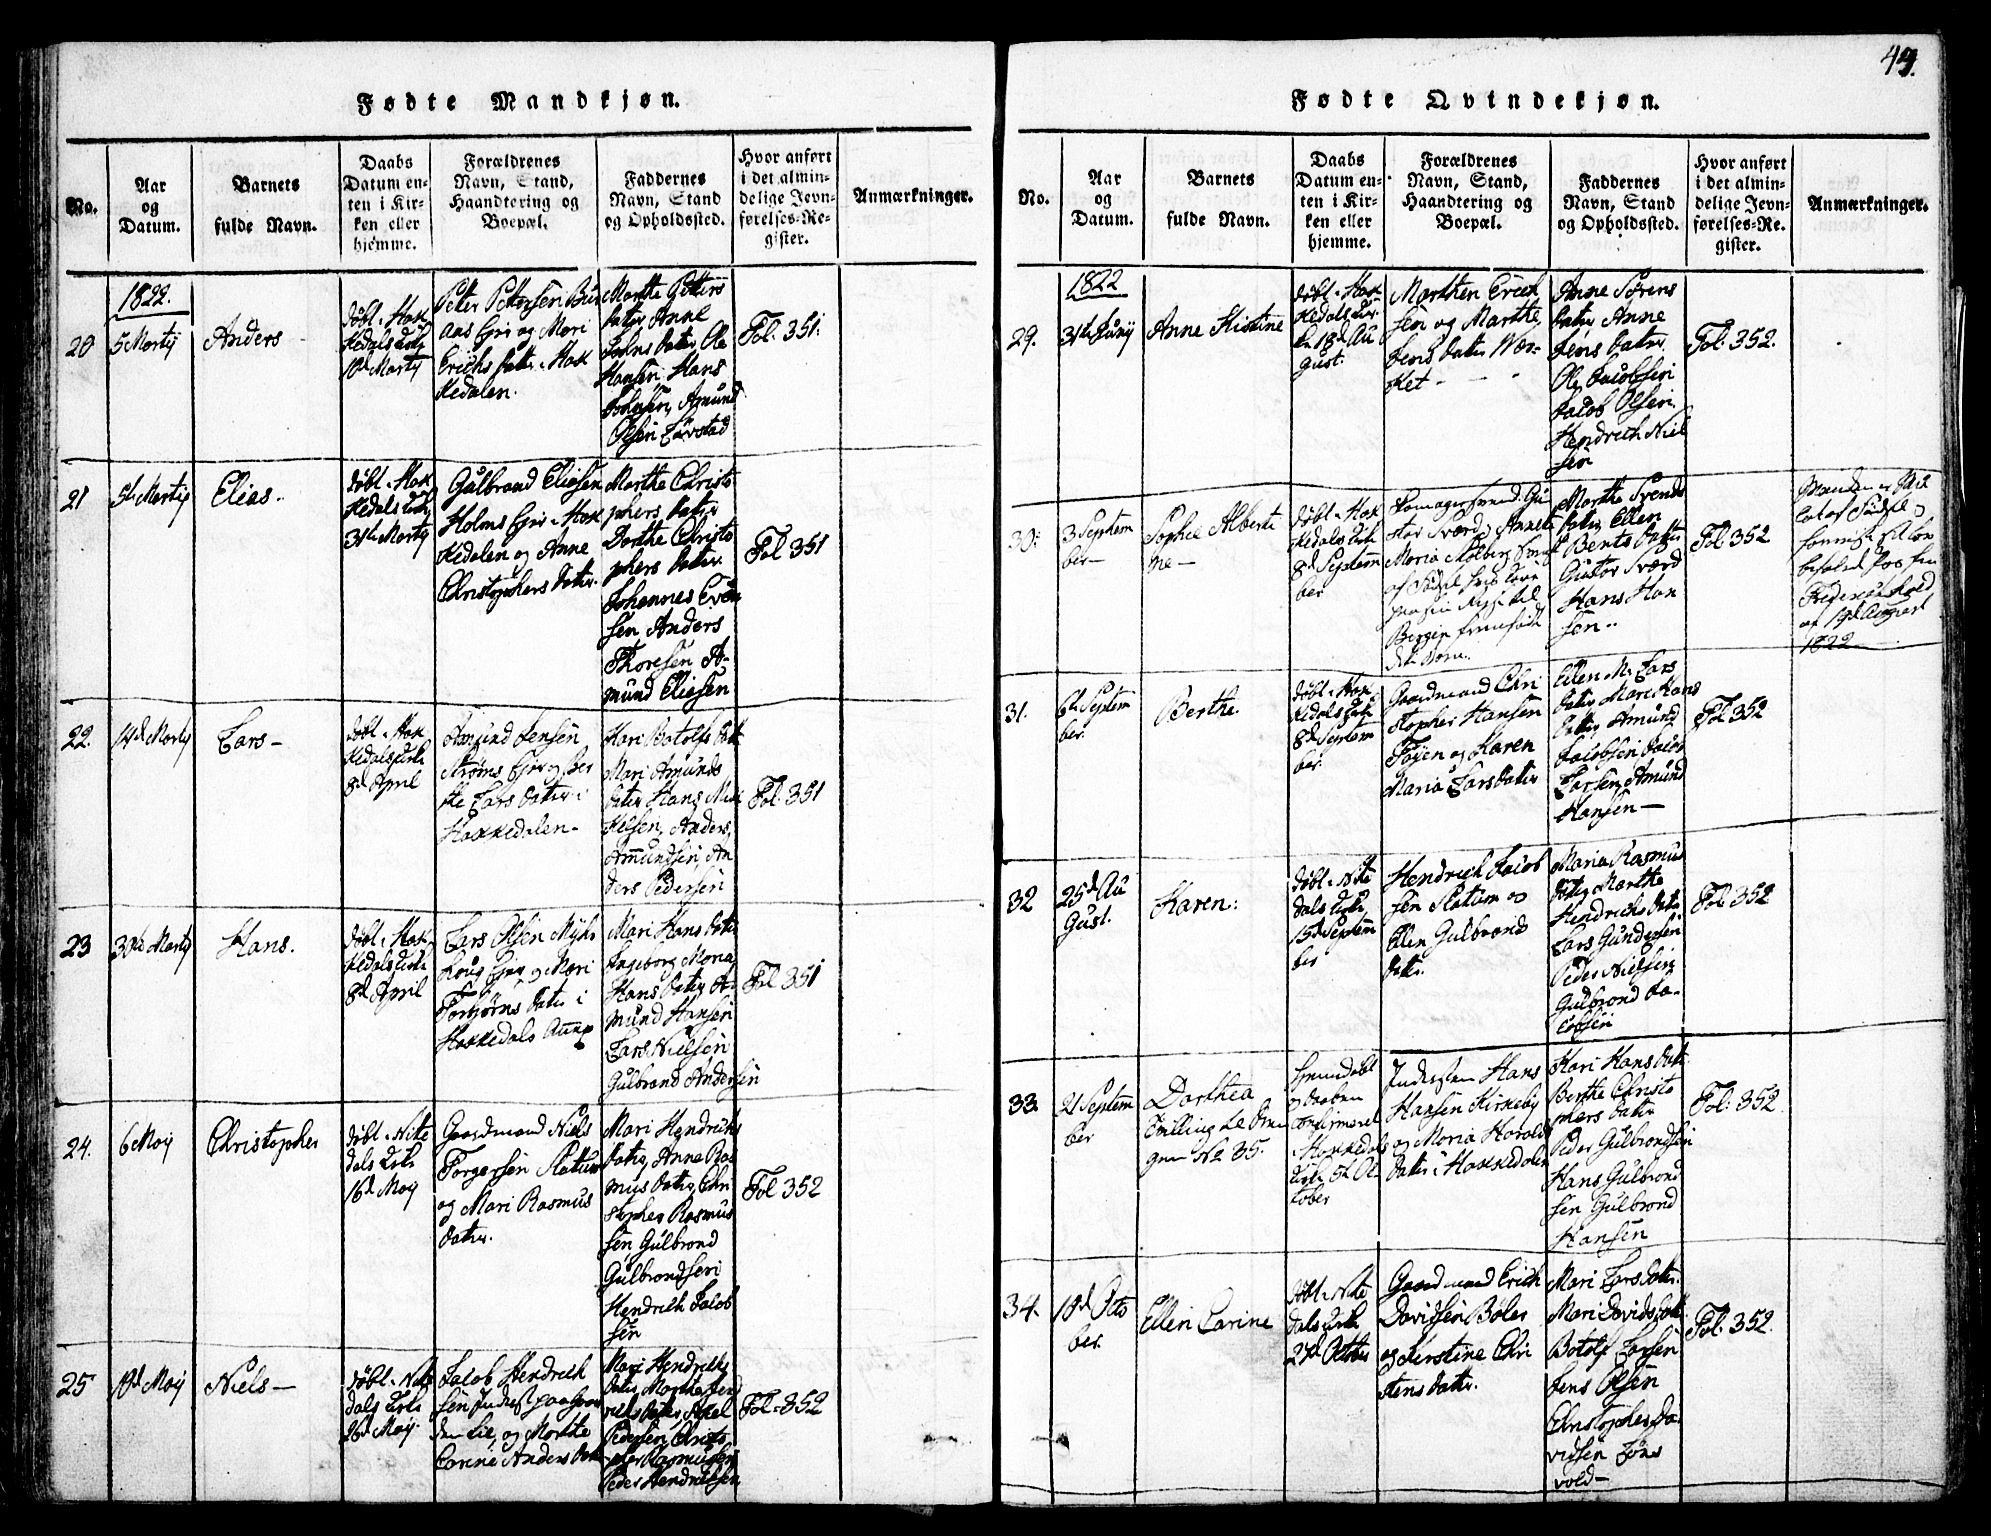 44.
Fødte Mandkjøn.
No.
Aar
og
Datum.
Barnets
fulde Navn.
Daabs
Datum en-
ten i Kir-
ken eller
hjemme.
Forældrenes
Navn, Stand,
Haandtering og
Boepæl.
Faddernes
Navn, Stand
og Opholdssted.
Hvor anført
i det almin-
delige Jevn-
førelses-Re-
gister.
Anmærkninger.
1822.
20
5 Martij
Anders
døbt i Hak
Kedals Kirke
10d Martij
Peter Pettersen Bür
aas Eje og Mari
Erichs datter i Hak
Kedalen.
Marthe Petters
datter Anne
Johns datter Ole
Hansen, Hans
Johnsen, Amund
Olsen
Fol. 351.
21
5te Martij
Elias.
døbt i Hak
Kedals Kirke
31te Martij
Gulbrand Eliasen
Holms Eje i Hak
Kedalen og Anne
Christophers datter.
Marthe Christo
phers datter
Dorthe Christo
phers datter
Johannes Even
sen Anders
Thoresen A-
mund Eliasen
Fol 351
22.
14d Martij
Lars -
døbt i Hak
Kedals Kirke
8d April
Amund Jensen
Strøms Eje og Ber
the Lars datter i
Hakkedalen -
Kari Botolfs datt
Mari Amunds
datter Hans Mi
Kelsen, Anders
Amundsen, An
ders Pedersen
Fol. 351
23
30te Martij
Hans.
døbt i Hak
Kedals Kirke
8d April
Lars Olsen Myhr
Eje og Mari
Torbjørns datter i
Hakkedals
Mari Hans datter
Ingeborg Maria
Hans datter A-
mund Hansen
Lars Nielsen
Gulbrand Andersen
Fol 351
24.
6 Maij
Christopher
døbt i Nitte
dals Kirke
16d Maij
Gaardmand Niels
Torgersen Slatum
og Mari Rasmus
datter.
Mari Hendrichs
datter, Anne Ras
mus datter, Chri
stopher Rasmus
sen, Gulbrand
Gulbrandsen
Hendrich Jacob
sen
Fol 352
25
10d Maij
Niels -
døbt i Nitte
dals Kirke
26d Maij
Jacob Hendrich
sen
og Marthe
Carine Anders datt
Mari Hendrichs
datter, Marthe Hen
richs datter Axel
Pedersen Christo
pher Rasmussen
Peder Hendrichsen
Fol. 352
Fødte Qvindekjøn.
No.
Aar
og
Datum.
Barnets
fulde Navn.
Daabs
Datum en-
ten i Kir-
ken eller
hjemme.
Forældrenes
Navn, Stand,
Haandtering og
Boepæl.
Faddernes
Navn, Stand
og Opholdssted.
Hvor anført
i det almin-
delige Jevn-
førelses-Re-
gister.
Anmærkninger.
1822
29.
Anne Kistine
døbt i Hak
Kedals Kir-
ke 18d Au
gust.
Marthen Erich
sen og Marthe
Jens datter Wær-
ket -
Anne Sørens
datter Anne
Jens datter
Ole Jacobsen
Jacob Olsen
Hendrich Niel
sen
Fol: 352.
30:
3 Septem
ber -
Sophie Alberti
ne -
døbt i Hak
Kedals Kirke
8d Septem
ber
Gu
stav Sværd og Annete
Maria Stolberg
af
Bergen
Marthe Svends
datter, Ellen
Bents datter
Gustav Sværd
Hans Han
sen.
Fol: 352
Frederikshald
af 19d August
1822
31.
6te Septem
ber.
Berthe.
døbt i Hak
Kedals Kirke
8d Septem
ber.
Gaardmand Chri
stopher Hansen
Tøyen og Karen
Maria Lars datter
Ellen M. Lars
datter Mari Hans
datter Amund
Jacobsen Jacob
Larsen, Amund
Hansen -
Fol 352
32
25d Au
gust.
Karen:
døbt i Nitte
dals Kirke
15d Septem
ber
Hendrich Jacob
sen Slatum og
Ellen Gulbrands
datter.
Maria Rasmus
datter Marthe
Hendrichs datter
Lars Gundersen
Peder Nielsen
Gulbrand Ja-
cobsen
Fol 352
33.
21 Septem
ber
Dorthea
No 35.
hjemmedøbt
og Daaben
Confirmeret
i Hakkedals
Kirke 5te Oc
tober
Inderst Hans
Hansen Kirkeby
og Maria Harolds
datter i Hakkedalen
Kari Hans datt
Berthe Christo
phers datter
Peder Gulbrandsen
Hans Gulbrand
sen Gulbrand
Hansen
Fol: 352
34.
10d Octo
ber.
Ellen Carine
døbt i Nitte
dals Kirke
27d October
Gaardmand Erich
Davidsen Bøler
og Kirstine Chri
stens datter.
Mari Lars datter.
Mari Davids datt
Botolf Larsen
Jens Olsen
Christopher Da
vidsen Løns
vold -
Fol: 352.